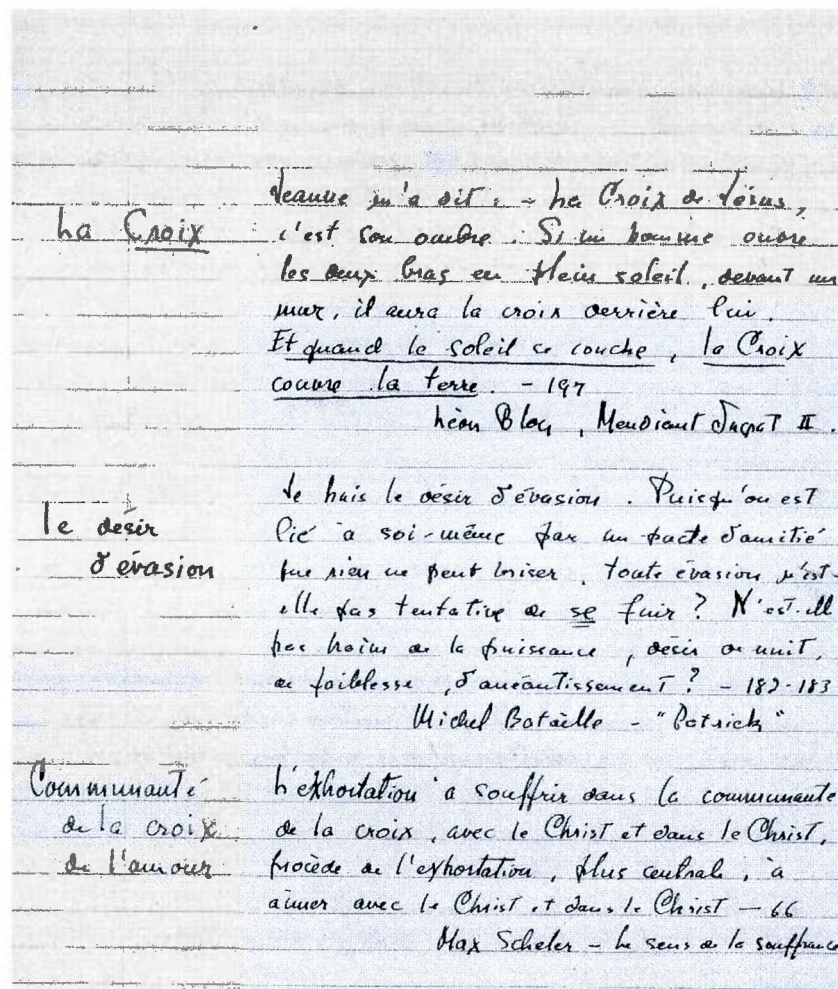 La Croix
Jeanne m'a dit : - La Croix de Jésus,
c'est son ombre. Si un homme ouvre
les deux bras en plein soleil, devant un
mur, il aura la croix derrière lui.
Et quand le soleil se couche, la Croix
couvre la terre. - 197
Léon Bloy, Mendiant Ingrat II.
le désir
d'évasion
Je hais le désir d'évasion. Puisqu'on est
lié à soi-même par un pacte d'amitié
que rien ne peut briser, toute évasion n'est-
elle pas tentative de se fuir ? N'est-elle
pas haine de la puissance, désir de nuit,
de faiblesse, d'anéantissement ? - 182-183
Michel Bataille - "Patrick"
Communauté
de la croix
de l'amour
L'exhortation à souffrir dans la communauté
de la croix, avec le Christ et dans le Christ,
procède de l'exhortation, plus centrale, à
aimer avec le Christ et dans le Christ - 66
Max Scheler - Le sens de la souffrance